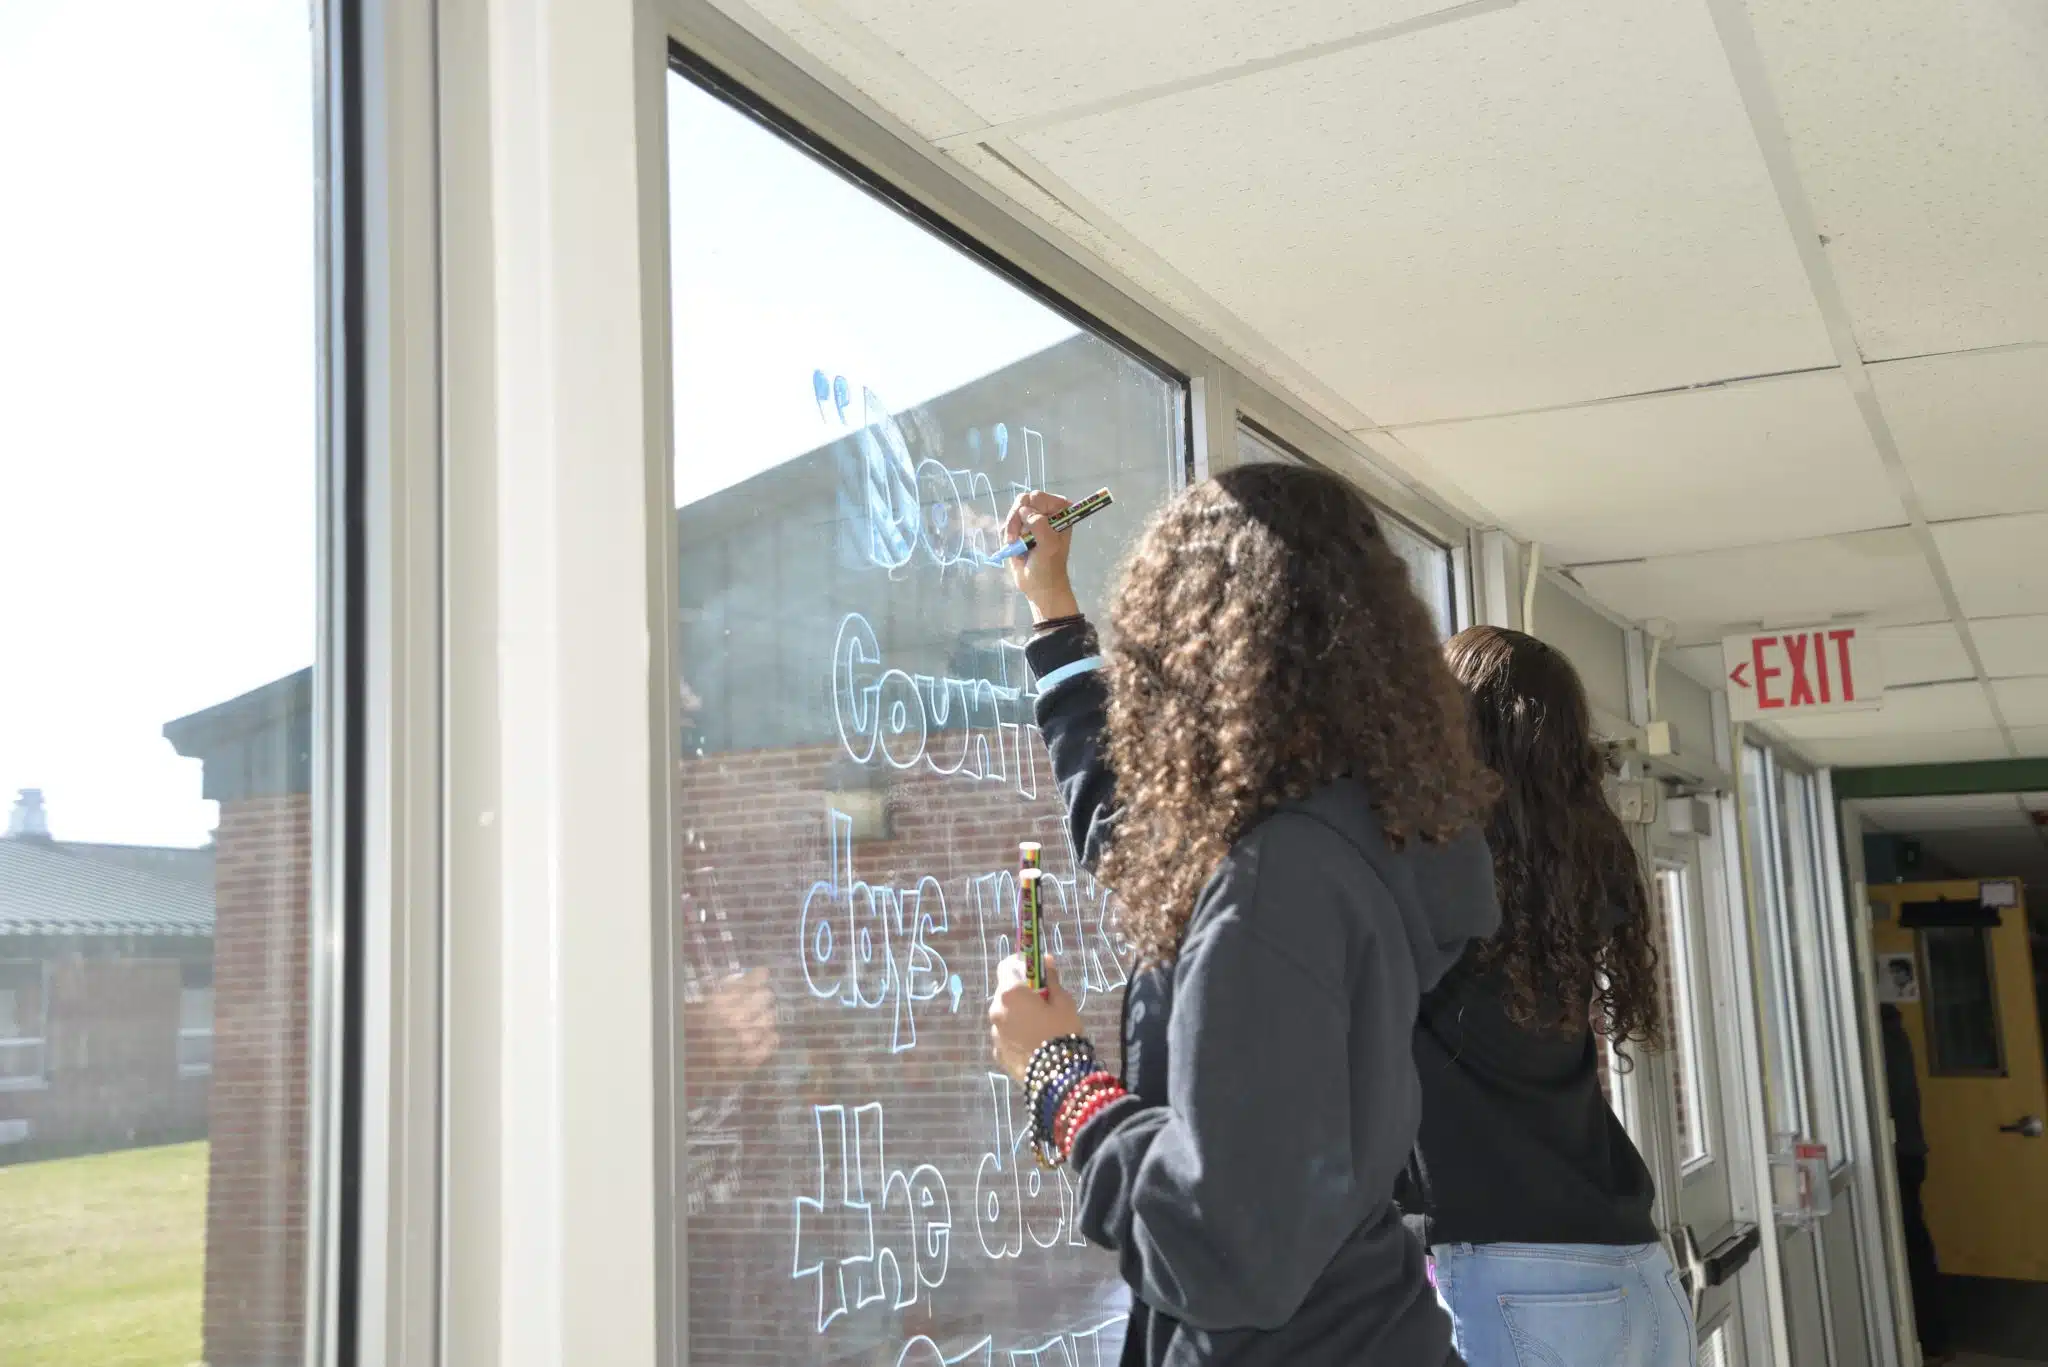 "Don't
Count
days, make
the days
<EXIT